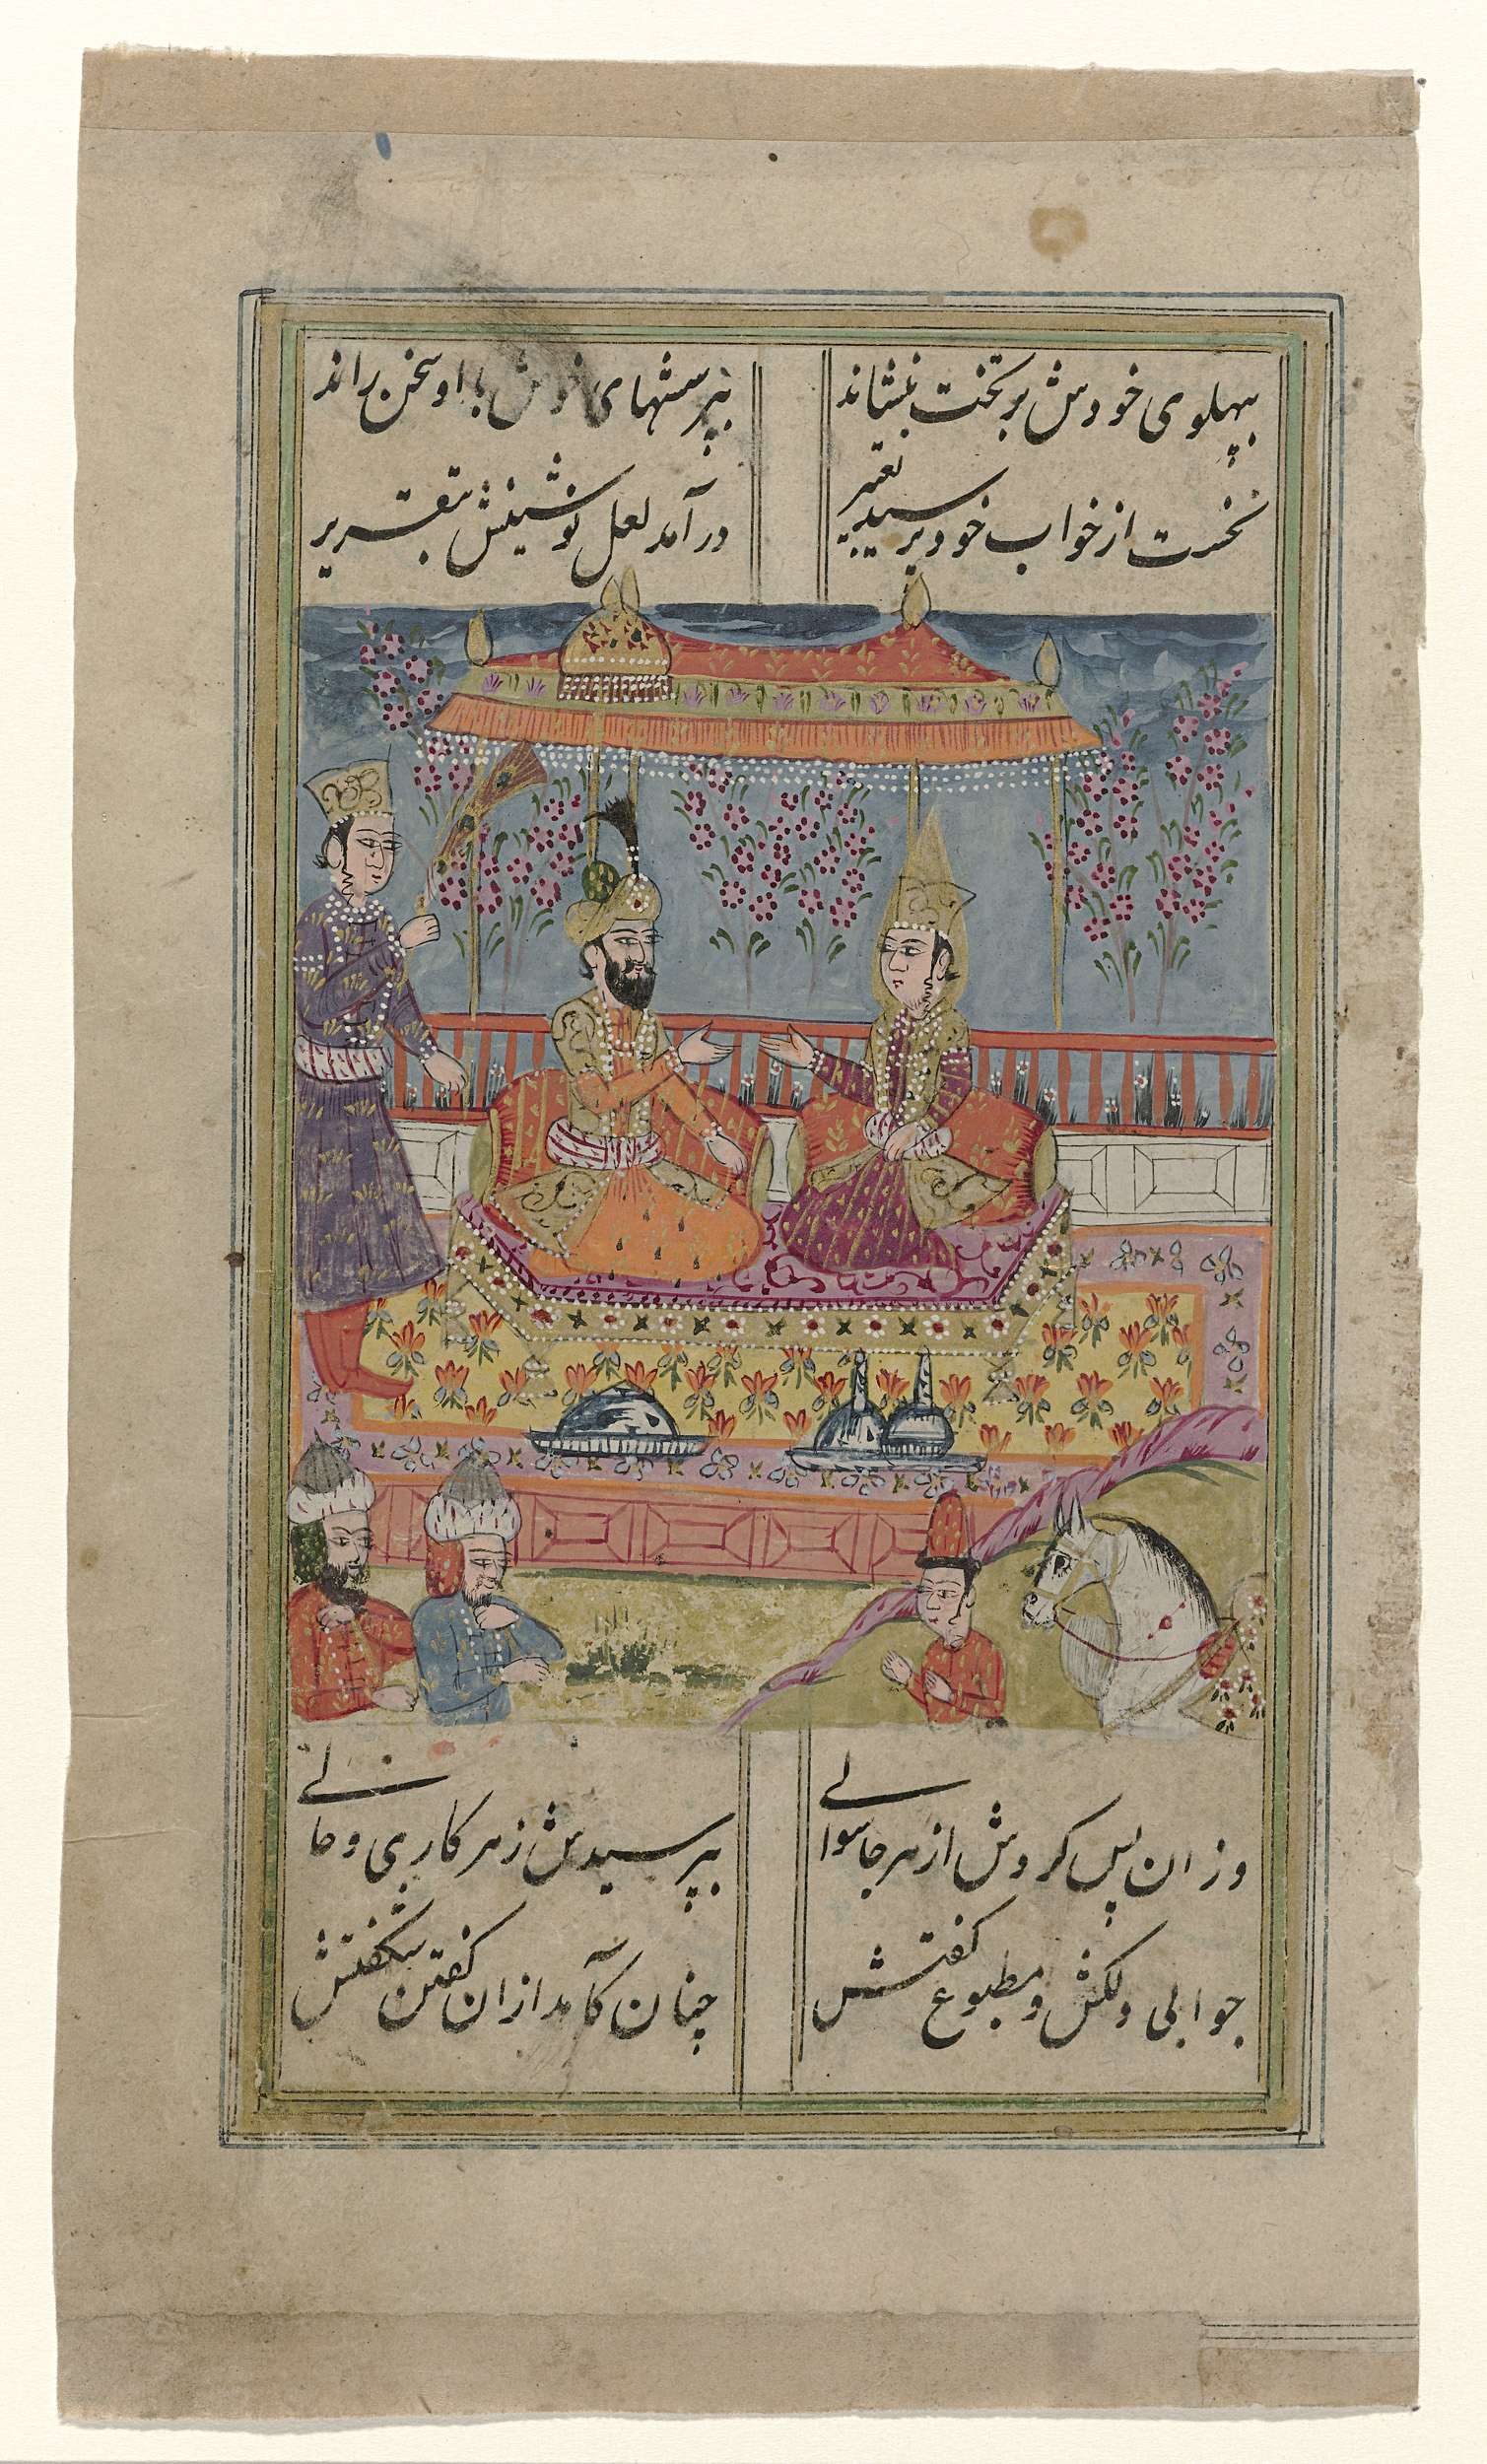 بپهلوی خودش بر تخت بنشاند
بپرسشهای خوش با او سخن راند
نخست از خواب خود پرسید تعبیر
در آمد لعل نوشینش بتقریر
وزان پس کردش از هر جا سوالی
بپرسیدش ز هر کاری و حالی
جوابی دلکش و مطبوع گفتش
چنان کآمد ازان گفتن شگفتش